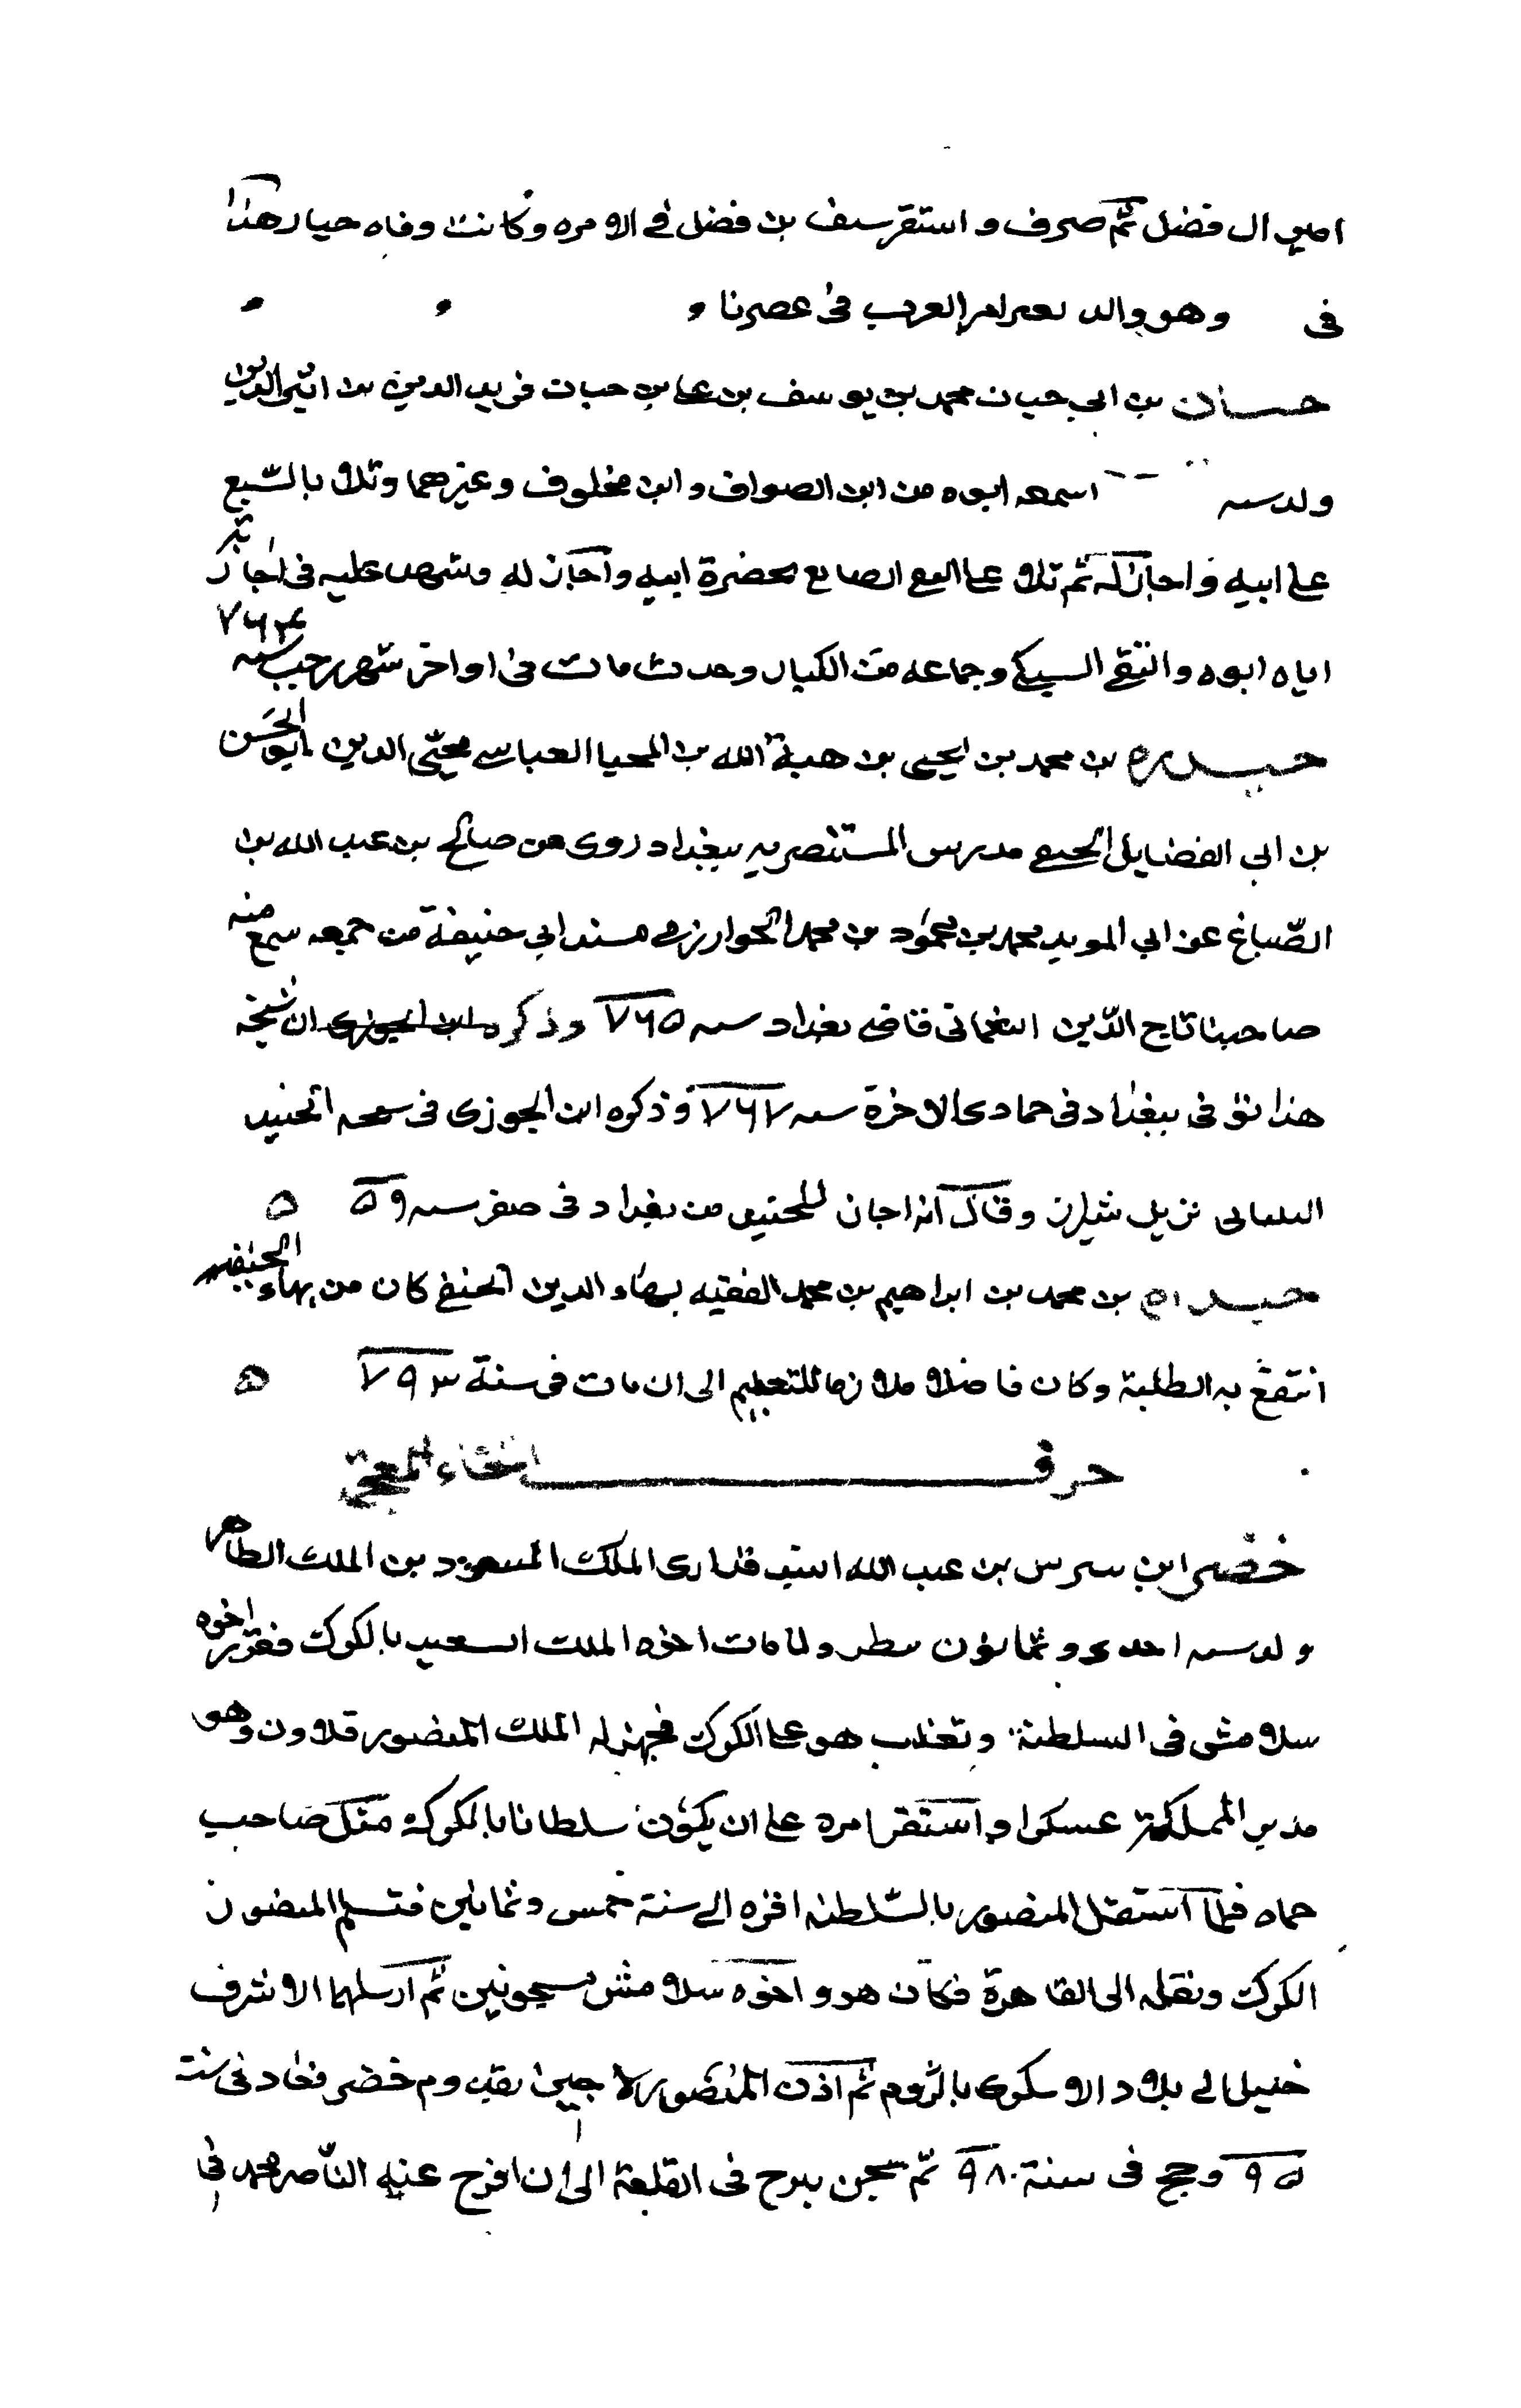 امير ال فضل ثم صرف و استقر سيف بن فضل في الامره و كانت وفاه حيار هذا
فى وهو والد نعير امير العرب فى عصرنا
حسان بن ابي حيان محمد بن يوسف بن على بن حيان فريد الدين بن اثير الدين
ولد سنه اسمعه ابوه من ابن الصواف و ابن مخلوف و غيرهما وتلا بالسبع
على ابيه و اجاز له ثم تلا على التقى الصايغ بحضرة ابيه و اجاز له وشهد عليه فى اجازته
اياه ابوه والتقي السبكي و جماعه من الكبار وحدث مات فى اواخر شهر رجب سنه ٧٦٤
حيدره بن محمد بن يحيى بن هبة الله بن المحيا العباسي محيى الدين ابو الحسن
بن ابي الفضايل الحنفي مدرس المستنصريه ببغداد روى عن صالح بن عبد الله بن
الصباغ عن ابي المويد محمد بن محمود بن محمد الخوارزمي مسند ابي حنيفة من جمعه سمع منه
صاحبنا تاج الدين النعمانى قاضي بغداد سنه ٧٦٥ و ذكر ابن الجوزى ان شيخه
هذا توفى ببغداد فى جمادى الاخرة سنه ٧٦٧ و ذكره ابن الجوزى فى الجنيد
نزيل شيراز و قال انه اجاز للجنيد من بغداد فى صفر سنه ٥٩
حيدره بن محمد بن ابراهيم بن محمد الفقيه بهاء الدين الحنفي كان من بهاء الحنفيه
انتفع به الطلبة و كان فاضلا ملازما للتعليم الى ان مات فى سنة ٧٩٣
حرف الخاء المعجمة
خضر ابن بيبرس بن عبد الله الملك المسعود بن الملك الظاهر
ولد سنه احدى و ولما مات اخوه الملك السعيد بالكرك فقرر اخوه
سلامش فى السلطنة و تغلب هو على الكرك فجهز له الملك المنصور قلاون وهو
مدبر المملكة عسكرا و استقر امره على ان يكون سلطانا بالكرك مثل صاحب
حماه فلما استقل المنصور بالسلطنه اقره الي سنة خمس وثمانين فتسلم المنصور
الكرك ونقله الى القاهرة فكان هو و اخوه سلامش مسجونين ثم ارسلهما الاشرف
خليل الي بلاد الاسكرى بالروم ثم اذن المنصور لاجين بقدوم خضر فعاد فى سنة
٩٥ وحج فى سنة ٩٨٠ ثم سجن ببرج فى القلعة الى ان افرج عنه الناصر محمد فى